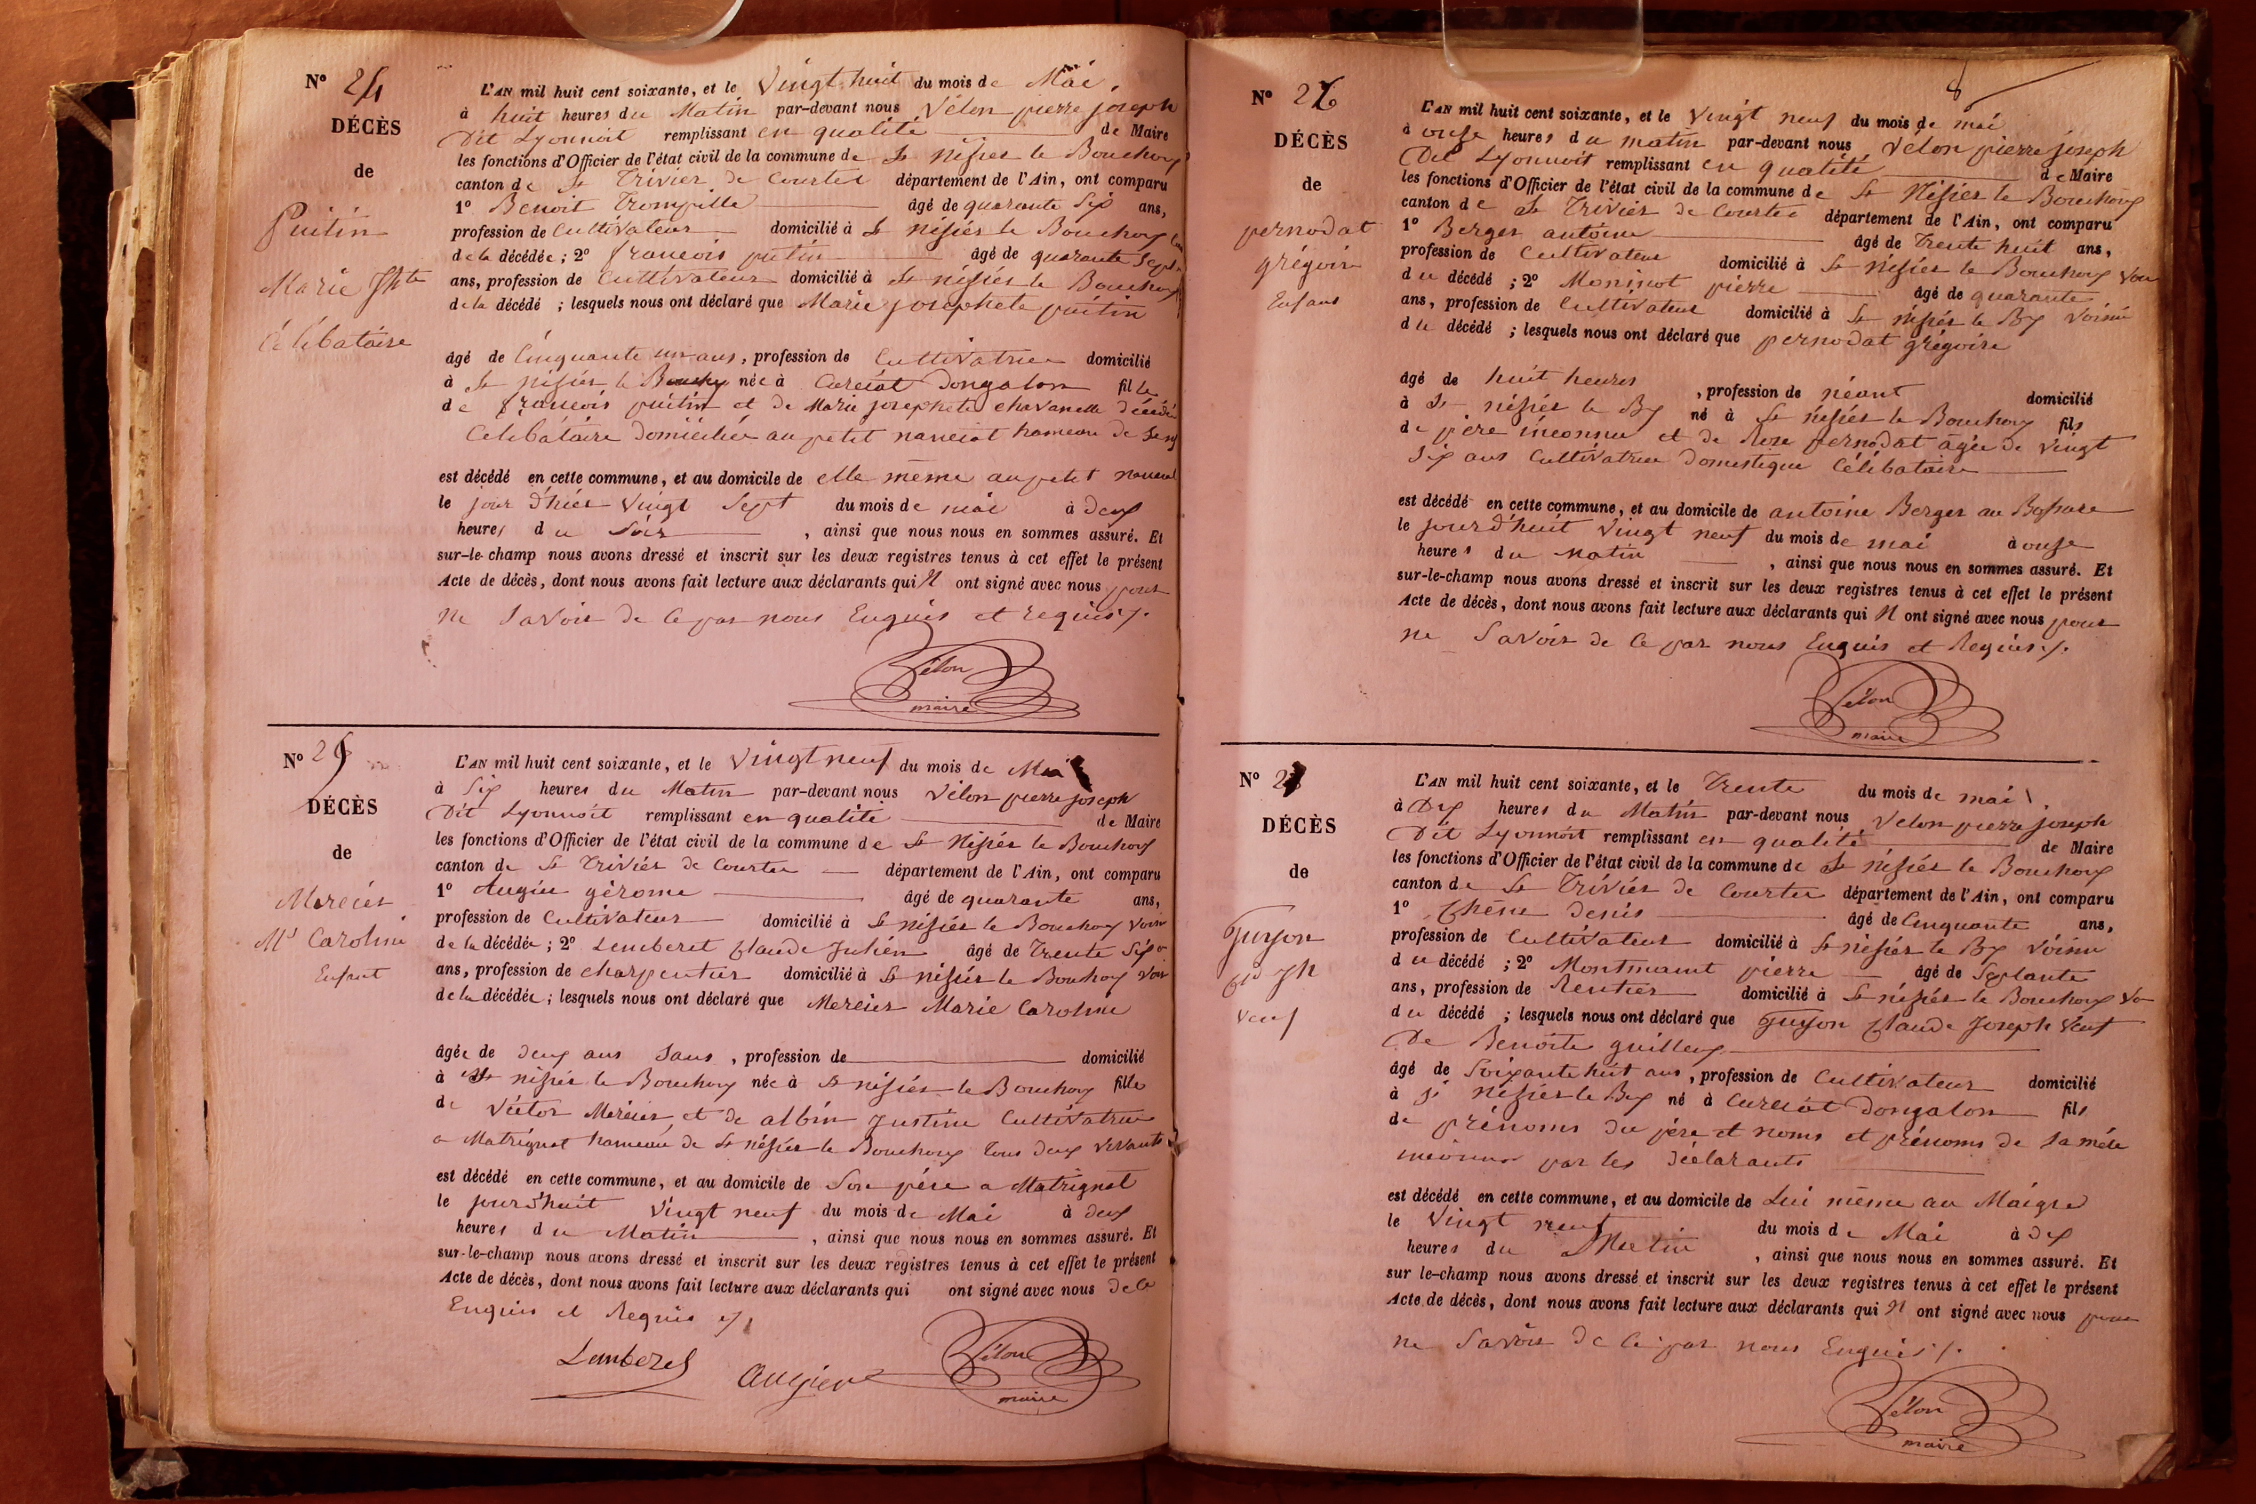 N° 24
DÉCÈS
de
Puitin
Marie Jhte
Célibataire
L'AN mil huit cent soixante, et le Vingt huit du mois de Mai
à huit heures du Matin par-devant nous Vélon pierre joseph
Dit Lyonnoit remplissant en qualité de Maire
les fonctions d'Officier de l'état civil de la commune de St Nisier le Bouchoux
canton de St Trivier de Courtes département de l'Ain, ont comparu
1° Benoit Trompille âgé de quarante Six ans,
profession de Cultivateur domicilié à St nisier le Bouchoux
de la décédée ; 2° francois puitin âgé de quarante Sept
ans, profession de Cultivateur domicilié à St nisier le Bouchoux
de la décédé ; lesquels nous ont déclaré que Marie josephete puitin
âgé de Cinquante un ans, profession de Cultivatrice domicilié
à St nisier le Bouchoux née à Curciat Dongalon fille
de francois puitin et de Marie josephete chavanelle décédés
Célibataire Domiciliée au petit nanciat hameau de
est décédé en cette commune, et au domicile de elle même au petit nanciat
le jour d'hier Vingt Sept du mois de mai à deux
heures du Soir , ainsi que nous nous en sommes assuré. Et
sur-le-champ nous avons dressé et inscrit sur les deux registres tenus à cet effet le présent
Acte de décès, dont nous avons fait lecture aux déclarants qui N ont signé avec nous pour
ne Savoir de Ce par nous Enquis et requis ./.
Vélon
maire
N° 25
DÉCÈS
de
Mercier
Mie Caroline
Enfant
L'AN mil huit cent soixante, et le Vingt neuf du mois de Mai
à Six heures du Matin par-devant nous Vélon pierre joseph
Dit Lyonnoit remplissant en qualité de Maire
les fonctions d'Officier de l'état civil de la commune de St Nisier le Bouchoux
canton de St Trivier de Courtes département de l'Ain, ont comparu
1° Augier gérome âgé de quarante ans,
profession de Cultivateur domicilié à St nisier le Bouchoux Voisin
de la décédée ; 2° Lemberet Claude Julien âgé de Trente Six
ans, profession de charpentier domicilié à St nisier le Bouchoux Vois
de la décédée ; lesquels nous ont déclaré que Mercier Marie Caroline
âgée de deux ans Sans , profession de domicilié
à St nisier le Bouchoux née à St nisier le Bouchoux fille
de Victor Mercier et de albin Justine Cultivatrice
a Matrignat hameau de St nisier le Bouchoux tous deux vivants
est décédé en cette commune, et au domicile de Son père a Matrignat
le jour d'huit Vingt neuf du mois de Mai à deux
heures du Matin , ainsi que nous nous en sommes assuré. Et
sur-le-champ nous avons dressé et inscrit sur les deux registres tenus à cet effet le présent
Acte de décès, dont nous avons fait lecture aux déclarants qui ont signé avec nous de ce
Enquis et Requis ./.
Lemberet Augier Vélon
maire
8
N° 26
DÉCÈS
de
pernodat
grégoire
Enfant
L'AN mil huit cent soixante, et le Vingt neuf du mois de mai
à onze heures du matin par-devant nous Vélon pierre joseph
Dit Lyonnoit remplissant en qualité de Maire
les fonctions d'Officier de l'état civil de la commune de St Nisier le Bouchoux
canton de St Trivier de Courtes département de l'Ain, ont comparu
1° Berger antoine âgé de Trente huit ans,
profession de Cultivateur domicilié à St nisier le Bouchoux Voi
du décédé ; 2° Moninot pierre âgé de quarante
ans, profession de Cultivateur domicilié à St nisier le Bx Voisin
du décédé ; lesquels nous ont déclaré que pernodat grégoire
âgé de huit heures , profession de néant domicilié
à St nisier le Bx né à St nisier le Bouchoux fils
de père inconnu et de Rose pernodat âgée de Vingt
Six ans Cultivatrice Domestique Célibataire
est décédé en cette commune, et au domicile de antoine Berger au
le jour d'huit Vingt neuf du mois de mai à onze
heures du Matin , ainsi que nous nous en sommes assuré. Et
sur-le-champ nous avons dressé et inscrit sur les deux registres tenus à cet effet le présent
Acte de décès, dont nous avons fait lecture aux déclarants qui N ont signé avec nous pour
ne Savoir de Ce par nous Enquis et Requis ./.
Vélon
maire
N° 2
DÉCÈS
de
Guyon
Cde Jh
Veuf
L'AN mil huit cent soixante, et le Trente du mois de mai
à Dix heures du Matin par-devant nous Vélon pierre joseph
Dit Lyonnoit remplissant en qualité de Maire
les fonctions d'Officier de l'état civil de la commune de St nisier le Bouchoux
canton de St Trivier de Courtes département de l'Ain, ont comparu
1° Chêne Denis âgé de Cinquante ans,
profession de Cultivateur domicilié à St nisier le Bx Voisin
du décédé ; 2° Montmamt pierre âgé de Septante
ans, profession de Rentier domicilié à St nisier le Bouchoux Vo
du décédé ; lesquels nous ont déclaré que Guyon Claude Joseph Veuf
De Benoite guilleux
âgé de Soixante huit ans, profession de Cultivateur domicilié
à St Nisier le Bx né à Curciat Dongalon fils
de prénoms du père et noms et prénoms de la mère
inconnus par les déclarants
est décédé en cette commune, et au domicile de Lui même au Maigre
le Vingt neuf du mois de Mai à dix
heures du Matin , ainsi que nous nous en sommes assuré. Et
sur le-champ nous avons dressé et inscrit sur les deux registres tenus à cet effet le présent
Acte de décès, dont nous avons fait lecture aux déclarants qui N ont signé avec nous pour
ne Savoir de Ce par nous Enquis ./.
Vélon
maire